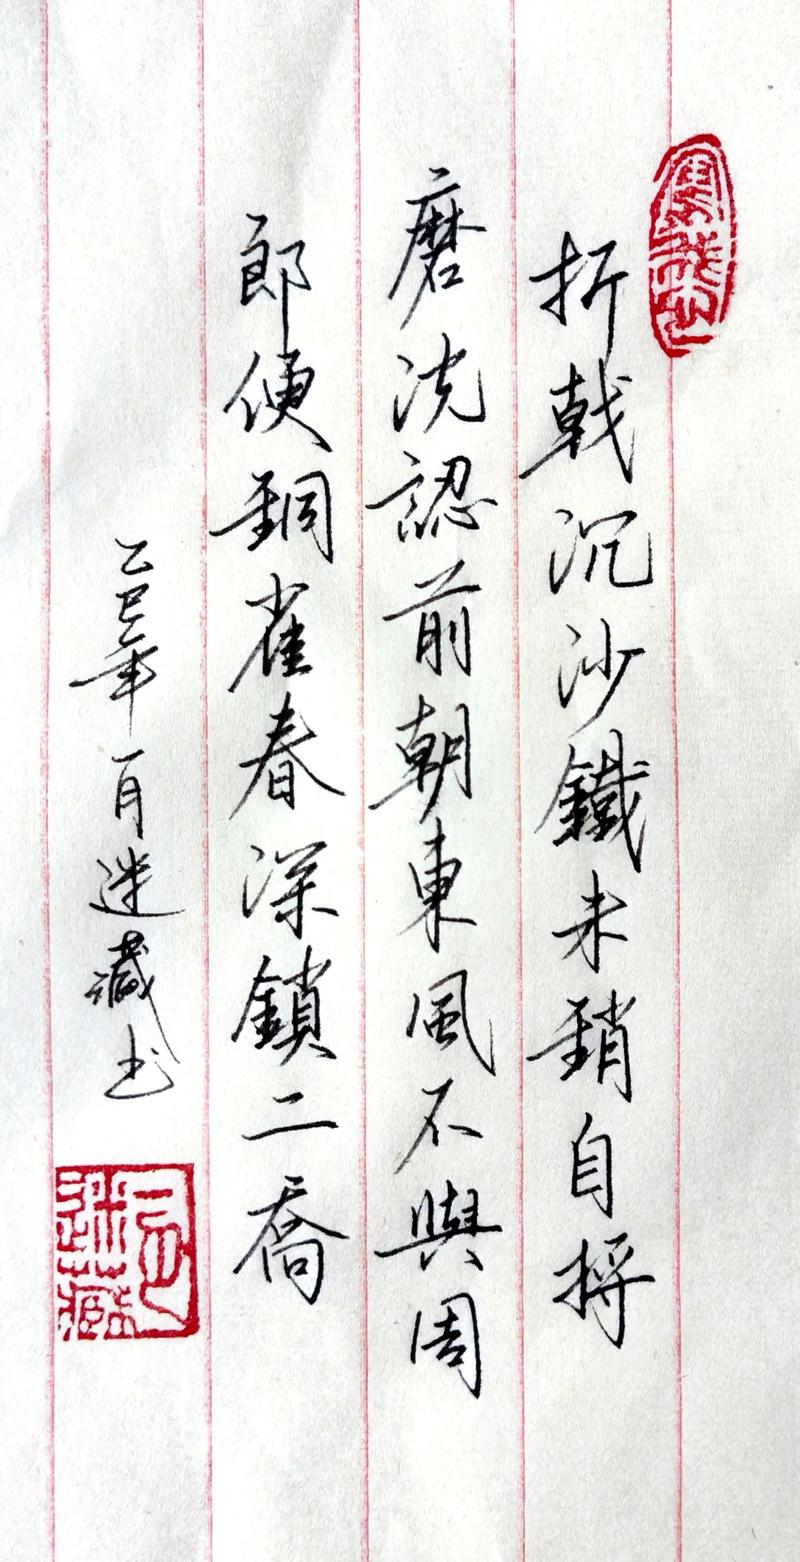 折戟沉沙鐵未銷自將
磨洗認前朝東風不與周
郎便銅雀春深鎖二喬
乙巳年一月迷藏书
一月迷藏